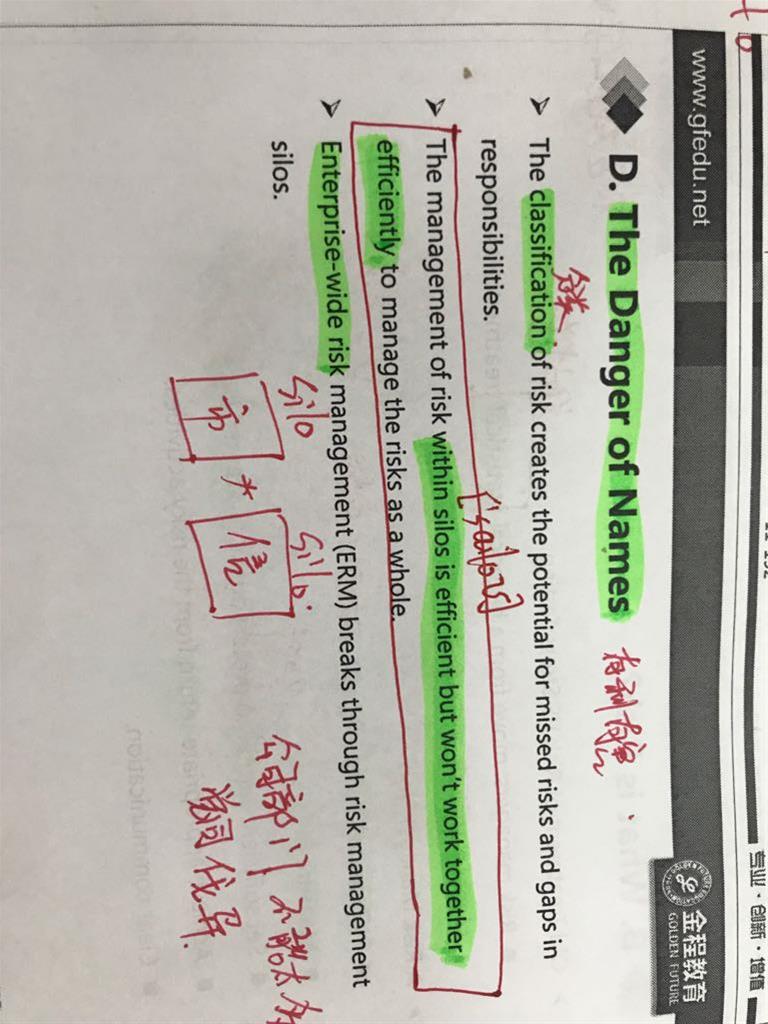 www.gfedu.net
专业·创新·增值
金程教育
GOLDEN FUTURE
D. The Danger of Names
有利有害
➢ The classification of risk creates the potential for missed risks and gaps in
分类
responsibilities.
['sailoz]
➢ The management of risk within silos is efficient but won't work together
efficiently to manage the risks as a whole.
➢ Enterprise-wide risk management (ERM) breaks through risk management
silos.
silo
silo.
市 * 信
部门 不能太